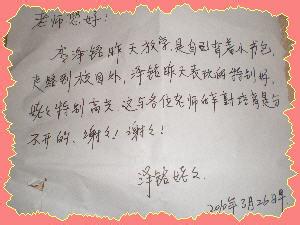 老师您好：
李泽铭昨天放学是自己背着小书包
走路到校门外，泽铭昨天表现的特别好，
姥姥特别高兴，这与各位老师的辛勤培育是分
不开的，谢谢！谢谢！
泽铭姥姥
2010年3月26日早